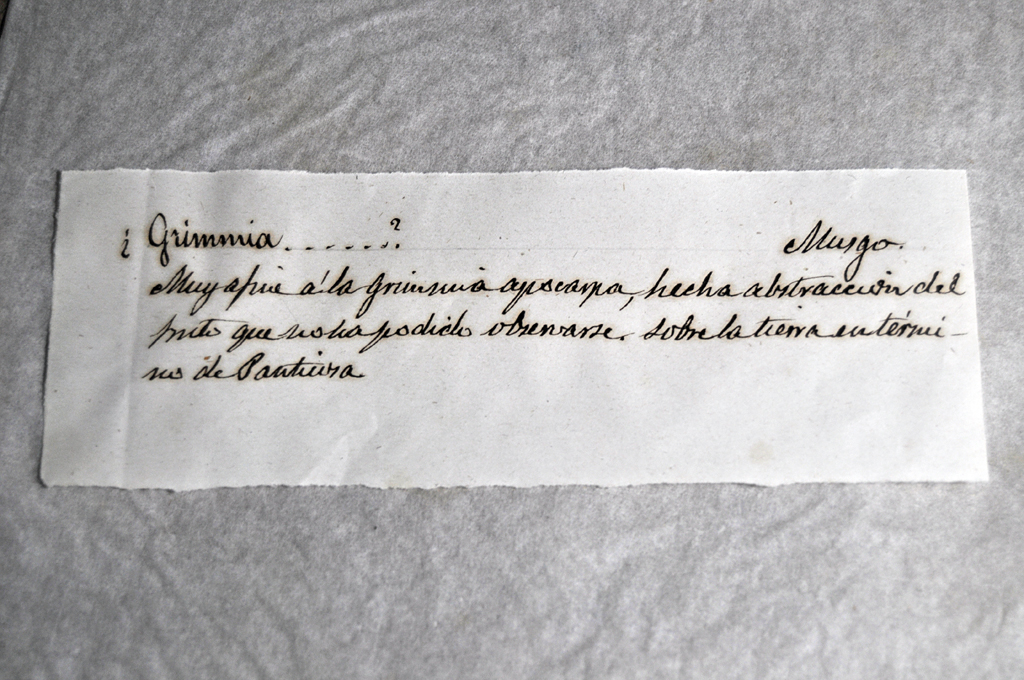 ¿ Grimmia.......? Musgo.
Muy afine á la grimmia apocarpa, hecha abstraccion del
fruto que no ha podido observarse. Sobre la tierra en térmi-
no de